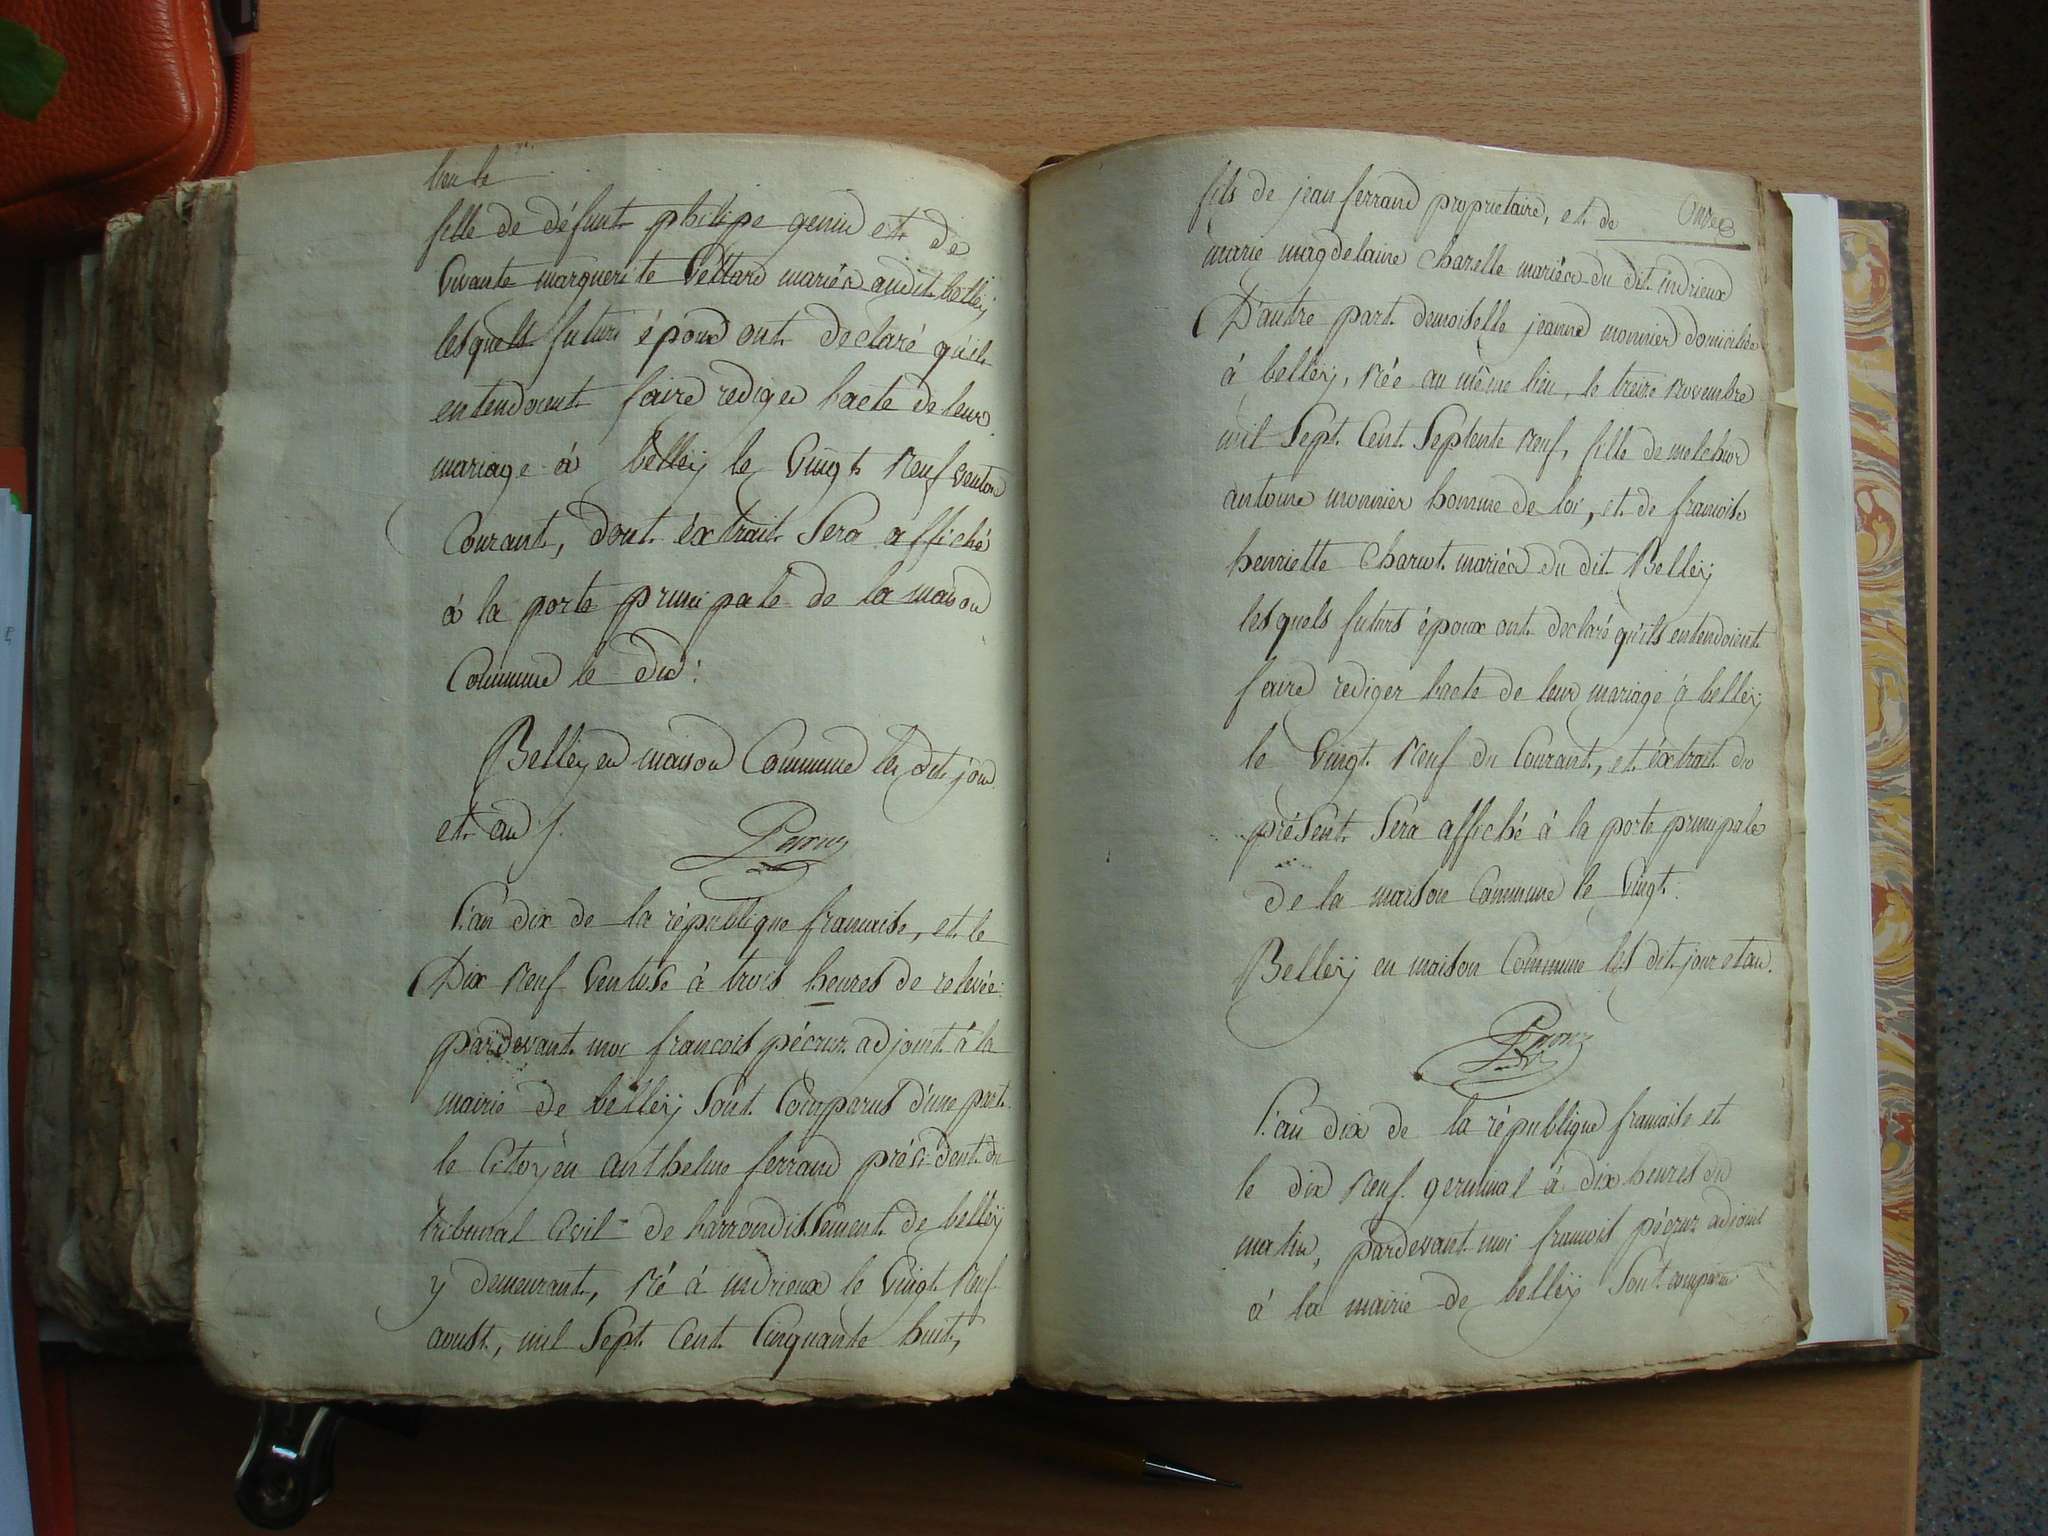 lieu le
fille de défunt philipe genin et de
Vivante marguerite Vettard mariés audit belleÿ
lesquels futurs époux ont declaré quils
entendoient faire rediger l'acte de leur
mariage à belleÿ le Vingt neuf Ventose
Courant, dont éxtrait Sera affiché
à la porte principale de la maison
Commune le dix:
Belleÿ en maison Commune les dit jour
et an /.
L'an dix de la république francaise, et le
Dix neuf Ventose à trois heures de relevée
pardevant moi francois pécruz adjoint à la
mairie de belleÿ Sont Comparus d'une part
le Citoyèn anthelme ferrand présidènt du
tribunal Civil de l'arrondissement de belleÿ
y demeurant, né à indrieux le Vingt neuf
aoust, mil Sept Cent Cinquante huit,
Onze
fils de jean ferrand proprietaire, et de
marie magdelaine Chazelle mariés du dit indrieux
D'autre part demoiselle jeanne monnier domiciliée
à belleÿ, née au même lieu, le treize novembre
mil Sept Cent Septente neuf, fille de melchior
antoine monnier homme de loi, et de francoise
henriette Charcot mariés du dit Belleÿ
lesquels futurs époux ont declaré qu'ils entendoient
faire rediger l'acte de leur mariage à belleÿ
le Vingt neuf du Courant, et éxtrait du
présent Sera affiché à la porte principale
de la maison Commune le Vingt.
Belleÿ en maison Commune les dit jour et an.
L'an dix de la république francaise et
le dix neuf germinal à dix heures du
matin, pardevant moi francois pécruz adjoint
à la mairie de belleÿ Sont comparus